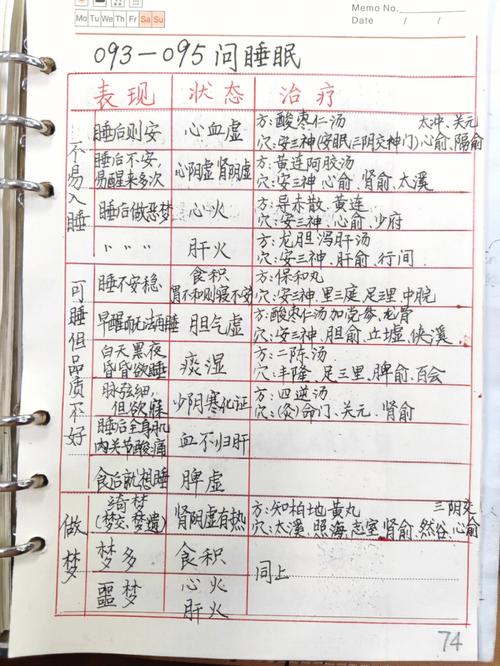 Memo No.
Mo Tu We Th Fr Sa Su
Date / /
093—095 问睡眠
表现 状态 治疗
不易入睡
睡后则安 心血虚 方:酸枣仁汤 太冲、关元
穴:安三神(安眠三阴交神门)心俞、隔俞
睡后不安, 心阴虚 肾阴虚 方:黄连阿胶汤
易醒来多次 穴:安三神 心俞、肾俞、太溪
睡后做恶梦 心火 方:导赤散、黄连
穴:安三神、心俞、少府
〃 〃 〃 肝火 方:龙胆泻肝汤
穴:安三神、肝俞、行间
可睡但品质不好
睡不安稳 食积 方:保和丸
胃不和则寝不安 穴:安三神、里三庭、足三里、中脘
早醒而无法再睡 胆气虚 方:酸枣仁汤加党参、龙骨
穴:安三神、胆俞、丘墟、侠溪
白天黑夜 痰湿 方:二陈汤
昏昏欲睡 穴:丰隆、足三里、脾俞、百会
脉弦细, 少阴寒化证 方:四逆汤
但欲寐 穴:(灸)命门、关元、肾俞
睡后全身肌 血不归肝
肉关节酸痛
食后就想睡 脾虚
做梦
绮梦 肾阴虚有热 方:知柏地黄丸 三阴交
(梦交、梦遗) 穴:太溪、照海、志室、肾俞、然谷、心俞
梦多 食积 同上
噩梦 心火
肝火
74